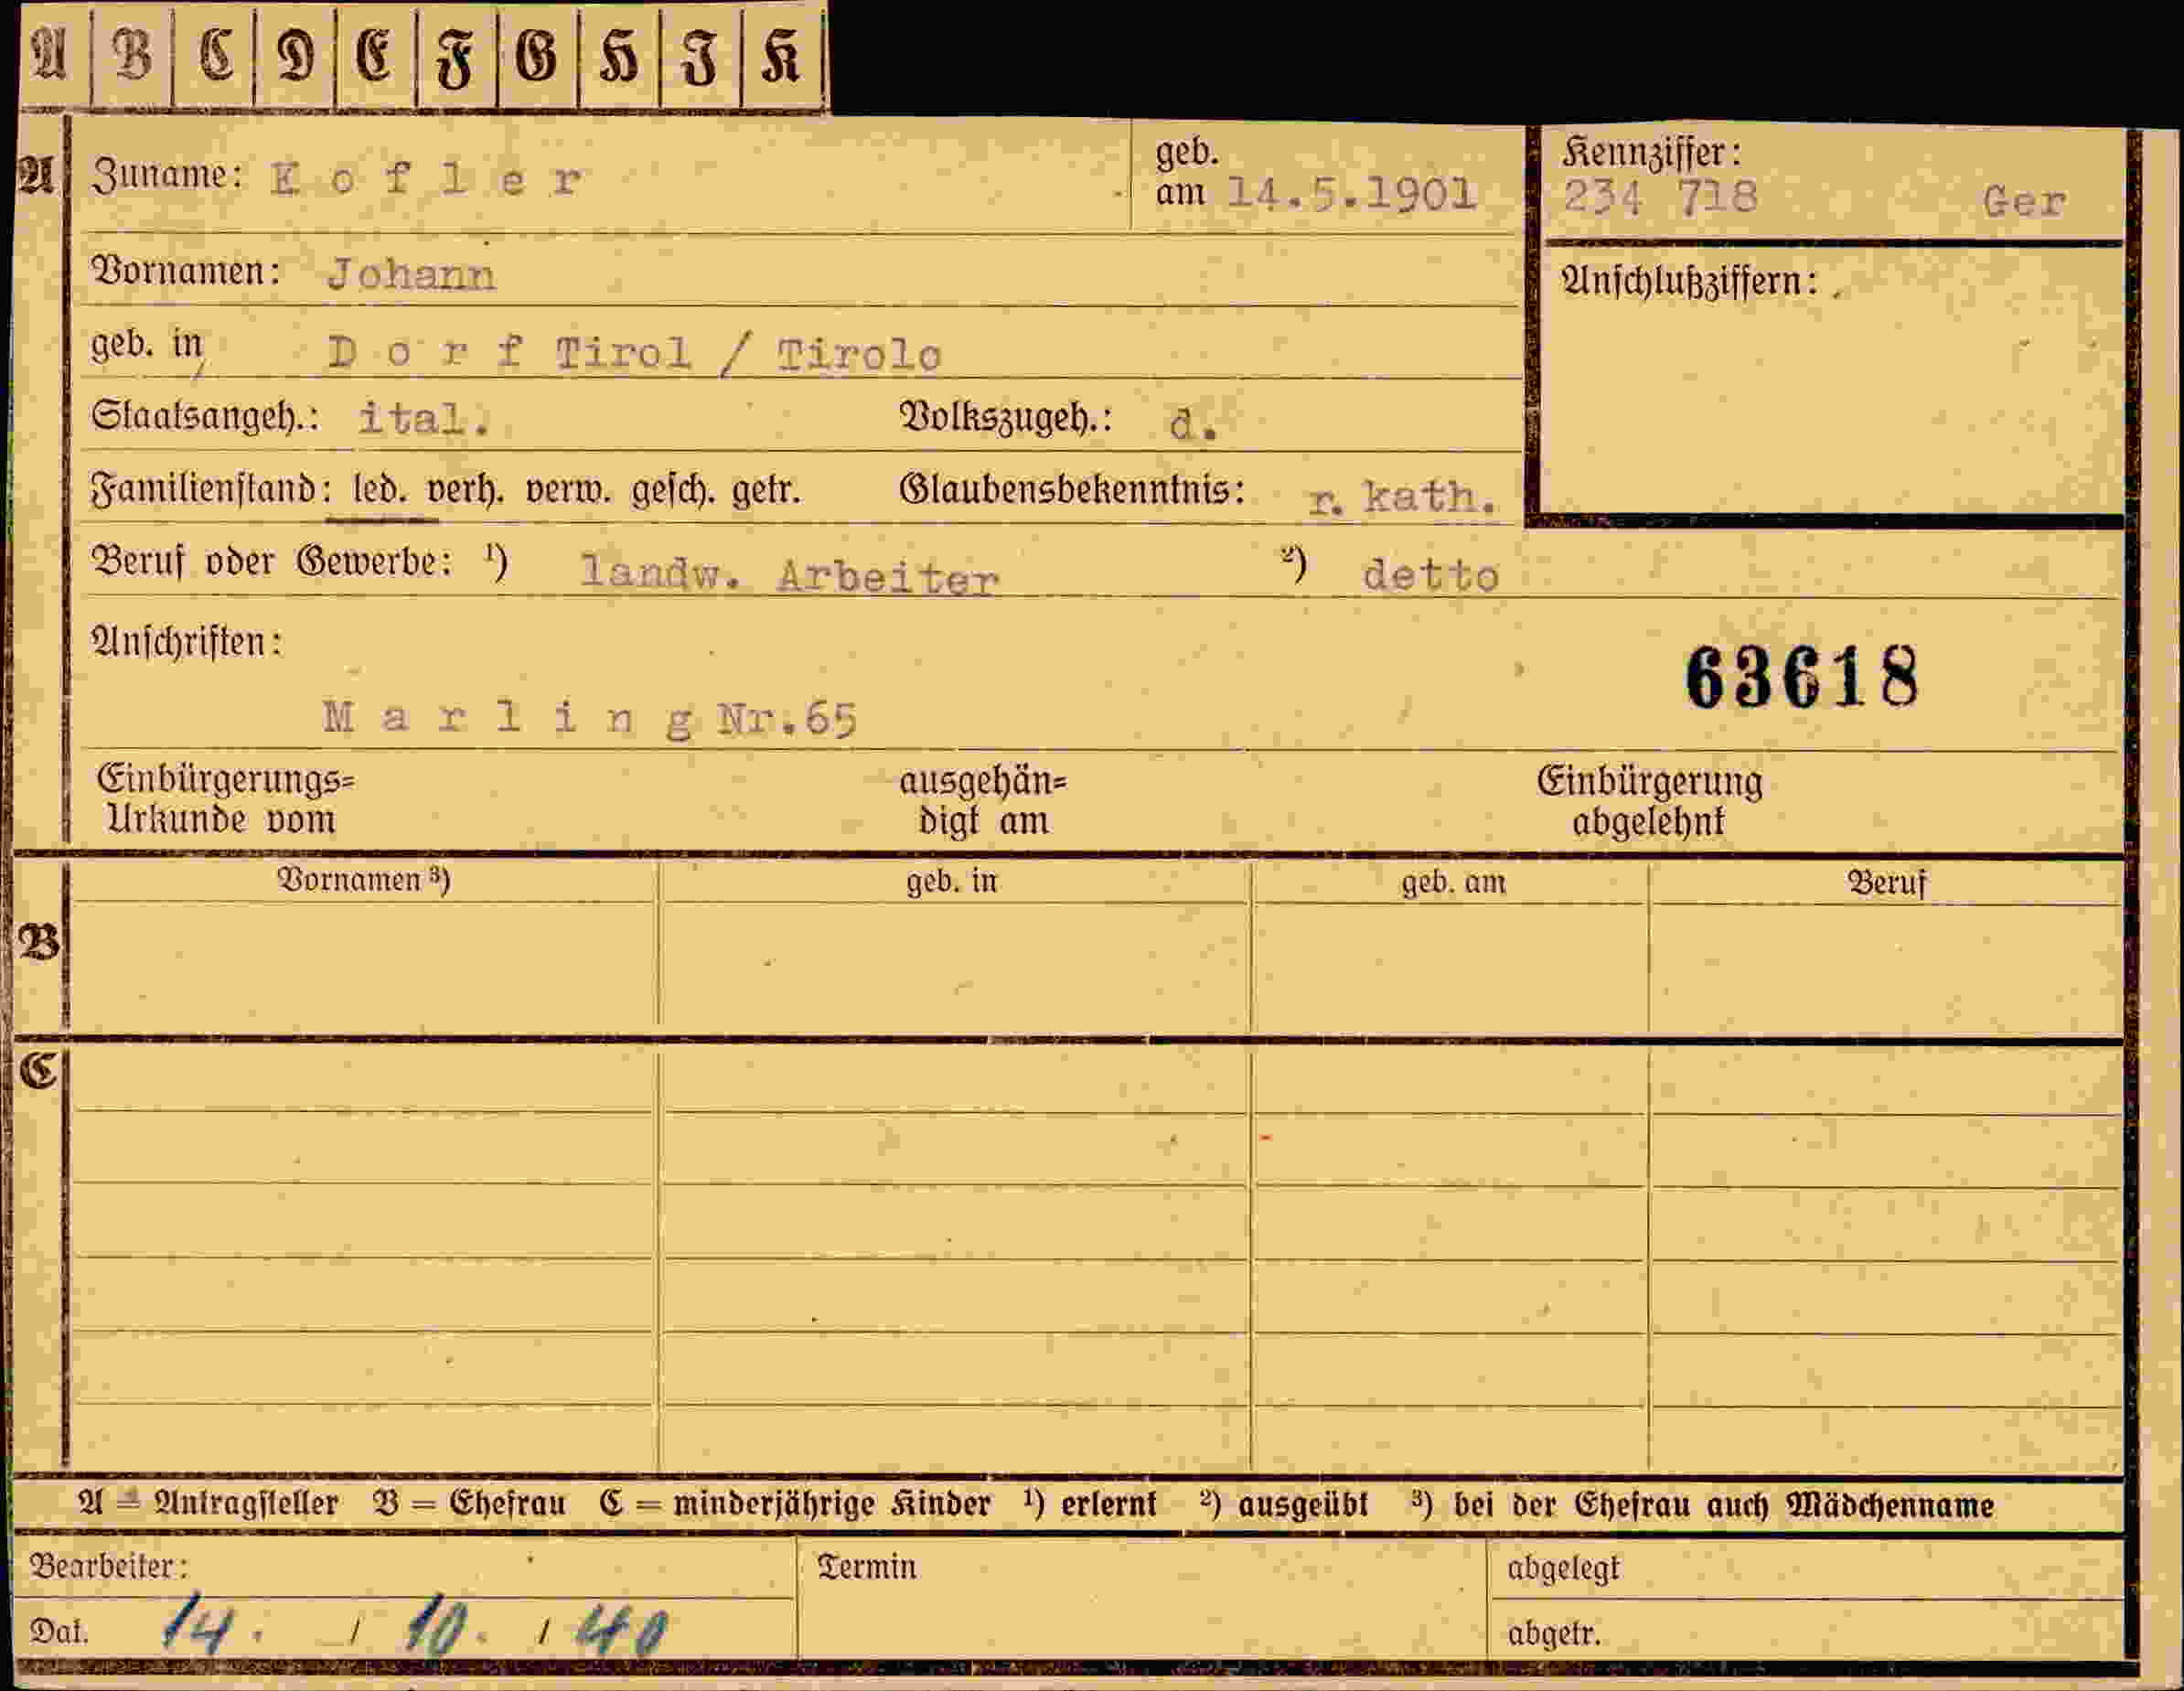 A B C D E F G H J K
A Zuname: Kofler geb. am 14.5.1901 Kennziffer: 234 718 Ger
Vornamen: Johann Anschlußziffern:
geb. in Dorf Tirol / Tirolo
Staatsangeh.: ital. Volkszugeh.: d.
Familienstand: led. verh. verw. gesch. getr. Glaubensbekenntnis: r. kath.
Beruf oder Gewerbe: ¹) landw. Arbeiter ²) detto
Anschriften:
63618
Marling Nr.65
Einbürgerungs= ausgehän= Einbürgerung
Urkunde vom digt am abgelehnt
Vornamen ³) geb. in geb. am Beruf
B
C
A = Antragsteller B = Ehefrau C = minderjährige Kinder ¹) erlernt ²) ausgeübt ³) bei der Ehefrau auch Mädchenname
Bearbeiter: Termin abgelegt
Dat. 14. / 10. / 40 abgetr.